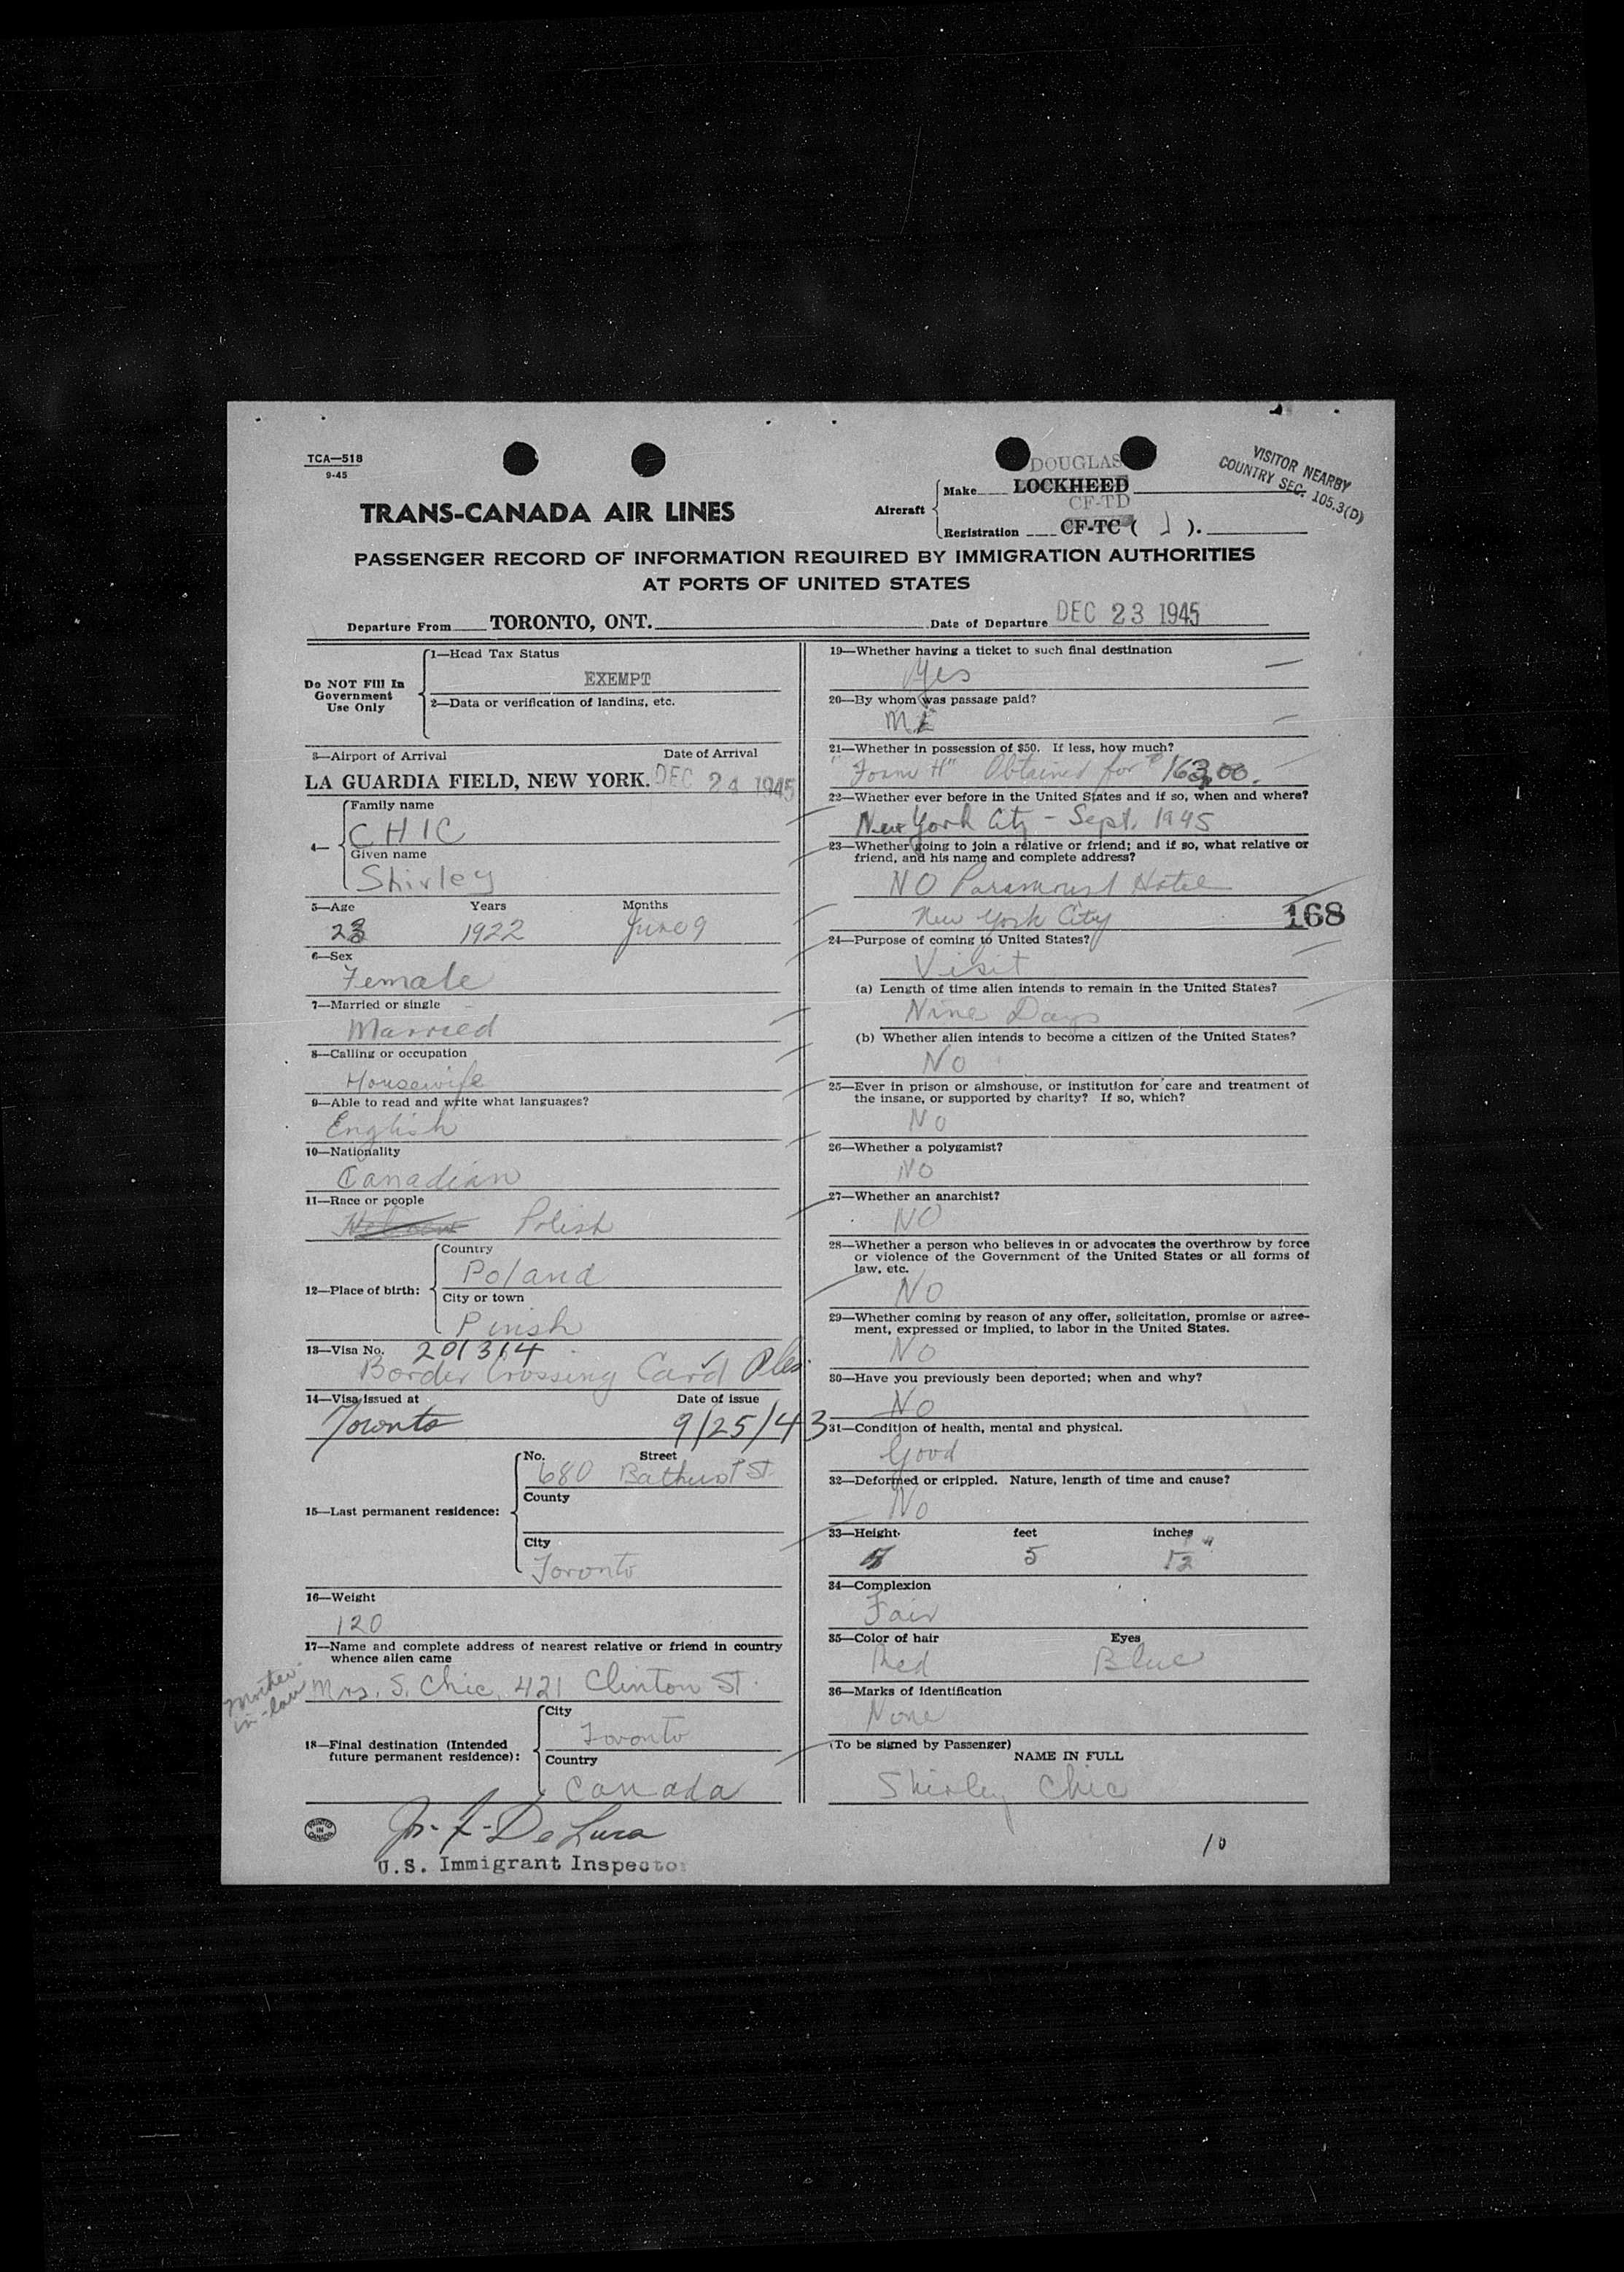 TCA—518
9-45
TRANS-CANADA AIR LINES
DOUGLAS
Aircraft
Make LOCKHEED
CF-TD
Registration CF-TC ( J ).
VISITOR NEARBY
COUNTRY SEC. 105.3(D)
PASSENGER RECORD OF INFORMATION REQUIRED BY IMMIGRATION AUTHORITIES
AT PORTS OF UNITED STATES
Departure From TORONTO, ONT. Date of Departure DEC 23 1945
Do NOT Fill In
Government
Use Only
1—Head Tax Status
EXEMPT
2—Data or verification of landing, etc.
3—Airport of Arrival Date of Arrival
LA GUARDIA FIELD, NEW YORK. DEC 24 1945
4—
Family name
CHIC
Given name
Shirley
5—Age Years Months
23 1922 June 9
6—Sex
Female
7—Married or single
Married
8—Calling or occupation
Housewife
9—Able to read and write what languages?
English
10—Nationality
Canadian
11—Race or people
Polish
12—Place of birth:
Country
Poland
City or town
Pinsk
13—Visa No. 201314
Border Crossing Card
14—Visa issued at Date of issue
Toronto 9/25/43
15—Last permanent residence:
No. Street
680 Bathurst St.
County
City
Toronto
16—Weight
120
17—Name and complete address of nearest relative or friend in country
whence alien came
Mother-
in-law
Mrs. S. Chic, 421 Clinton St.
18—Final destination (Intended
future permanent residence):
City
Toronto
Country
Canada
De Luca
U.S. Immigrant Inspector
PRINTED
IN
CANADA
19—Whether having a ticket to such final destination
Yes
20—By whom was passage paid?
ME
21—Whether in possession of $50. If less, how much?
"Form H" Obtained for $163.00.
22—Whether ever before in the United States and if so, when and where?
New York City - Sept. 1945
23—Whether going to join a relative or friend; and if so, what relative or
friend, and his name and complete address?
NO Paramount Hotel
New York City
168
24—Purpose of coming to United States?
Visit
(a) Length of time alien intends to remain in the United States?
Nine Days
(b) Whether alien intends to become a citizen of the United States?
No
25—Ever in prison or almshouse, or institution for care and treatment of
the insane, or supported by charity? If so, which?
No
26—Whether a polygamist?
NO
27—Whether an anarchist?
NO
28—Whether a person who believes in or advocates the overthrow by force
or violence of the Government of the United States or all forms of
law, etc.
No
29—Whether coming by reason of any offer, solicitation, promise or agree-
ment, expressed or implied, to labor in the United States.
No
30—Have you previously been deported; when and why?
No
31—Condition of health, mental and physical.
Good
32—Deformed or crippled. Nature, length of time and cause?
No
33—Height. feet inches
5
34—Complexion
Fair
35—Color of hair Eyes
Red Blue
36—Marks of identification
None
(To be signed by Passenger)
NAME IN FULL
Shirley Chic
10